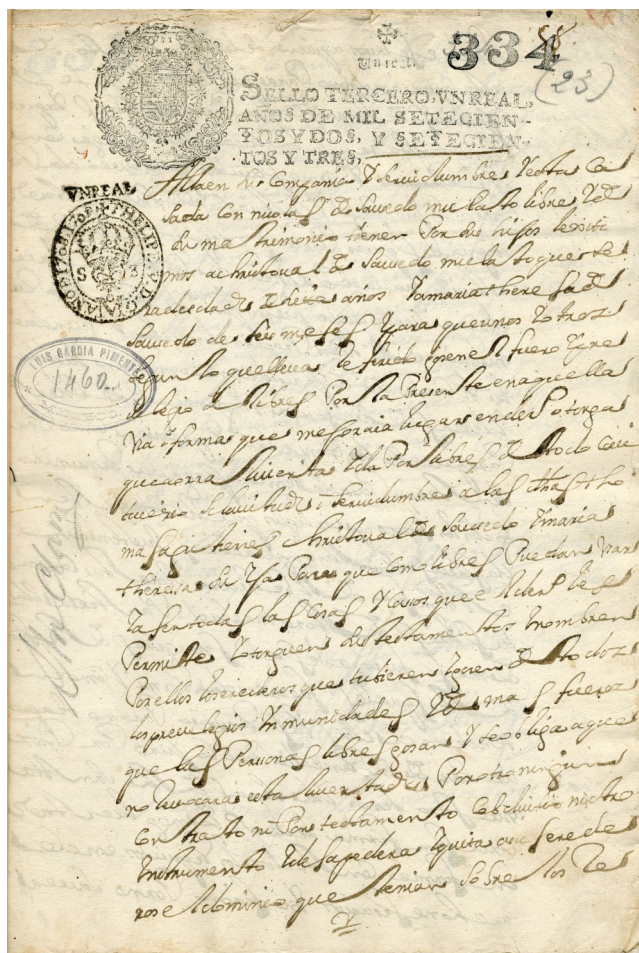 334
(23)
Un real
SELLO TERCERO, VN REAL,
AÑOS DE MIL SETECIEN-
TOS Y DOS, Y SETECIEN-
TOS Y TRES,
VNREAL
S 3
LUIS GARCIA PIMENTEL
1460
Compañia y servidumbre y esta Ca
sada con de Sausedo mulato libre y de
su matrimonio tiene por sus hijos lexiti
mos a christoval de Sausedo mulato que se
de años y a maria theresa de
Sausedo de seis meses y para que unos y otros
segun lo que lleva referido gosen el fuero y pre
de libres Por la Presente en aquella
via y forma que mejor aia lugar en derecho otorga
que aorra liverta y da Por libres de todo cau
tiverio y servidumbre a las dichas tho
christoval de Sausedo y maria
theresa su Para que como libres Puedan usar
todas las cosas y casos que el der les
Permite y otorguen sus testamentos y nombren
Por ellos los erederos que tubieren y gosen de todos
los previlegios ynmunidades y demas fueros
que las Personas libres gosan y se obliga a que
no revocara esta livertad Por otro ningun
contrato ni Por testamento cobdicilio ni otro
ynstrumento y desapodera y quita a sus erede
ros el dominio que tenian sobre los re